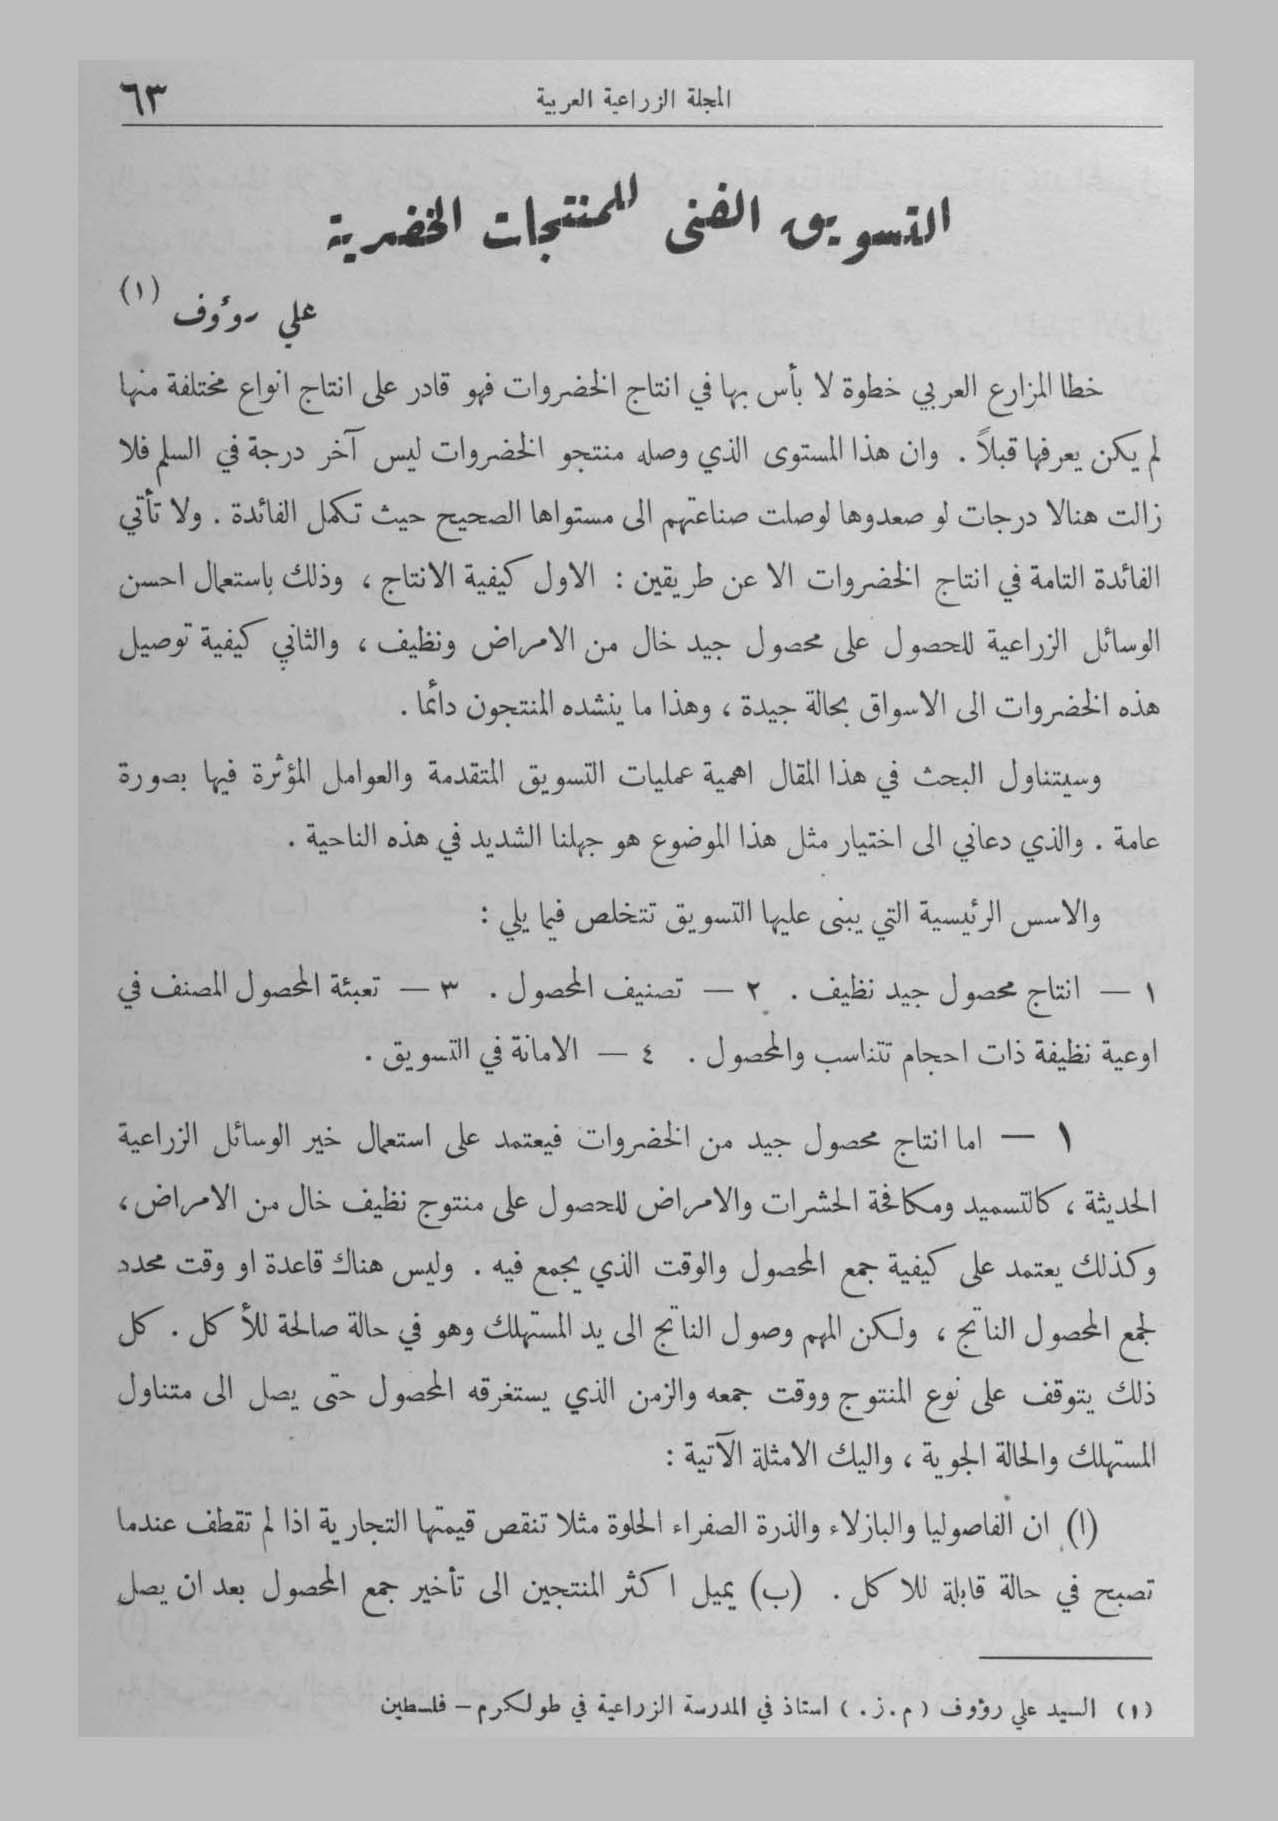 المجلة الزراعية العربية
٦٣
التسويق الفنى للمنتجات الخضرية
علي رؤوف (١)
خطا المزارع العربي خطوة لا بأس بها في انتاج الخضروات فهو قادر على انتاج انواع مختلفة منها
لم يكن يعرفها قبلاً . وان هذا المستوى الذي وصله منتجو الخضروات ليس آخر درجة في السلم فلا
زالت هنالا درجات لو صعدوها لوصلت صناعتهم الى مستواها الصحيح حيث تكمل الفائدة . ولا تأتي
الفائدة التامة في انتاج الخضروات الا عن طريقين : الاول كيفية الانتاج ، وذلك باستعمال احسن
الوسائل الزراعية للحصول على محصول جيد خال من الامراض ونظيف ، والثاني كيفية توصيل
هذه الخضروات الى الاسواق بحالة جيدة ، وهذا ما ينشده المنتجون دائما .
وسيتناول البحث في هذا المقال اهمية عمليات التسويق المتقدمة والعوامل المؤثرة فيها بصورة
عامة . والذي دعاني الى اختيار مثل هذا الموضوع هو جهلنا الشديد في هذه الناحية .
والاسس الرئيسية التي يبنى عليها التسويق تتخلص فيما يلي :
١ — انتاج محصول جيد نظيف . ٢ — تصنيف المحصول . ٣ — تعبئة المحصول المصنف في
اوعية نظيفة ذات احجام تتناسب والمحصول . ٤ — الامانة في التسويق .
١ — اما انتاج محصول جيد من الخضروات فيعتمد على استعمال خير الوسائل الزراعية
الحديثة ، كالتسميد ومكافحة الحشرات والامراض للحصول على منتوج نظيف خال من الامراض ،
وكذلك يعتمد على كيفية جمع المحصول والوقت الذي يجمع فيه . وليس هناك قاعدة او وقت محدد
لجمع المحصول الناتج ، ولكن المهم وصول الناتج الى يد المستهلك وهو في حالة صالحة للأكل . كل
ذلك يتوقف على نوع المنتوج ووقت جمعه والزمن الذي يستغرقه المحصول حتى يصل الى متناول
المستهلك والحالة الجوية ، واليك الامثلة الآتية :
(ا) ان الفاصوليا والبازلاء والذرة الصفراء الحلوة مثلا تنقص قيمتها التجارية اذا لم تقطف عندما
تصبح في حالة قابلة للاكل . (ب) يميل اكثر المنتجين الى تأخير جمع المحصول بعد ان يصل
(١) السيد علي رؤوف (م . ز .) استاذ في المدرسة الزراعية في طولكرم – فلسطين